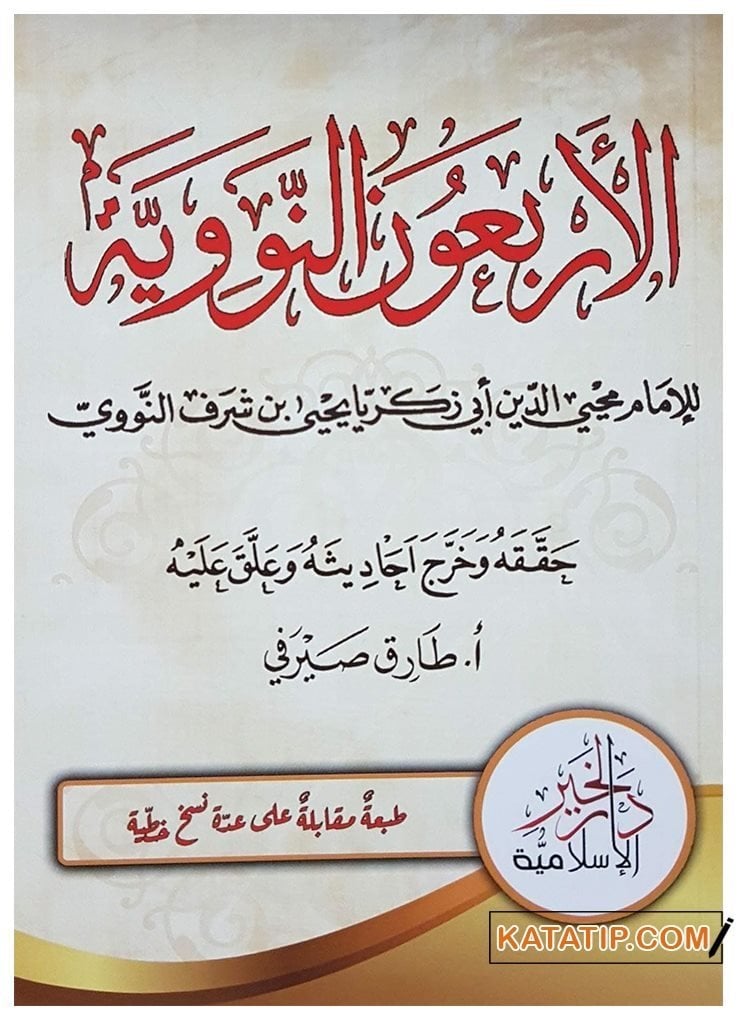 الأَربعون النَّوَوِيَّة
للإمَام محيي الدّين أبي زكريّا يحيى بن شرف النَّوويّ
حَقَّقَهُ وَخَرَّجَ اَحَادِيثَهُ وَعَلَّقَ عَلَيْهِ
أ. طَارِق صَيْرَفي
طبعةٌ مقابلةٌ على عدّة نسخ خطّية
دار الخير
الإسلاميّة
KATATIP.COM